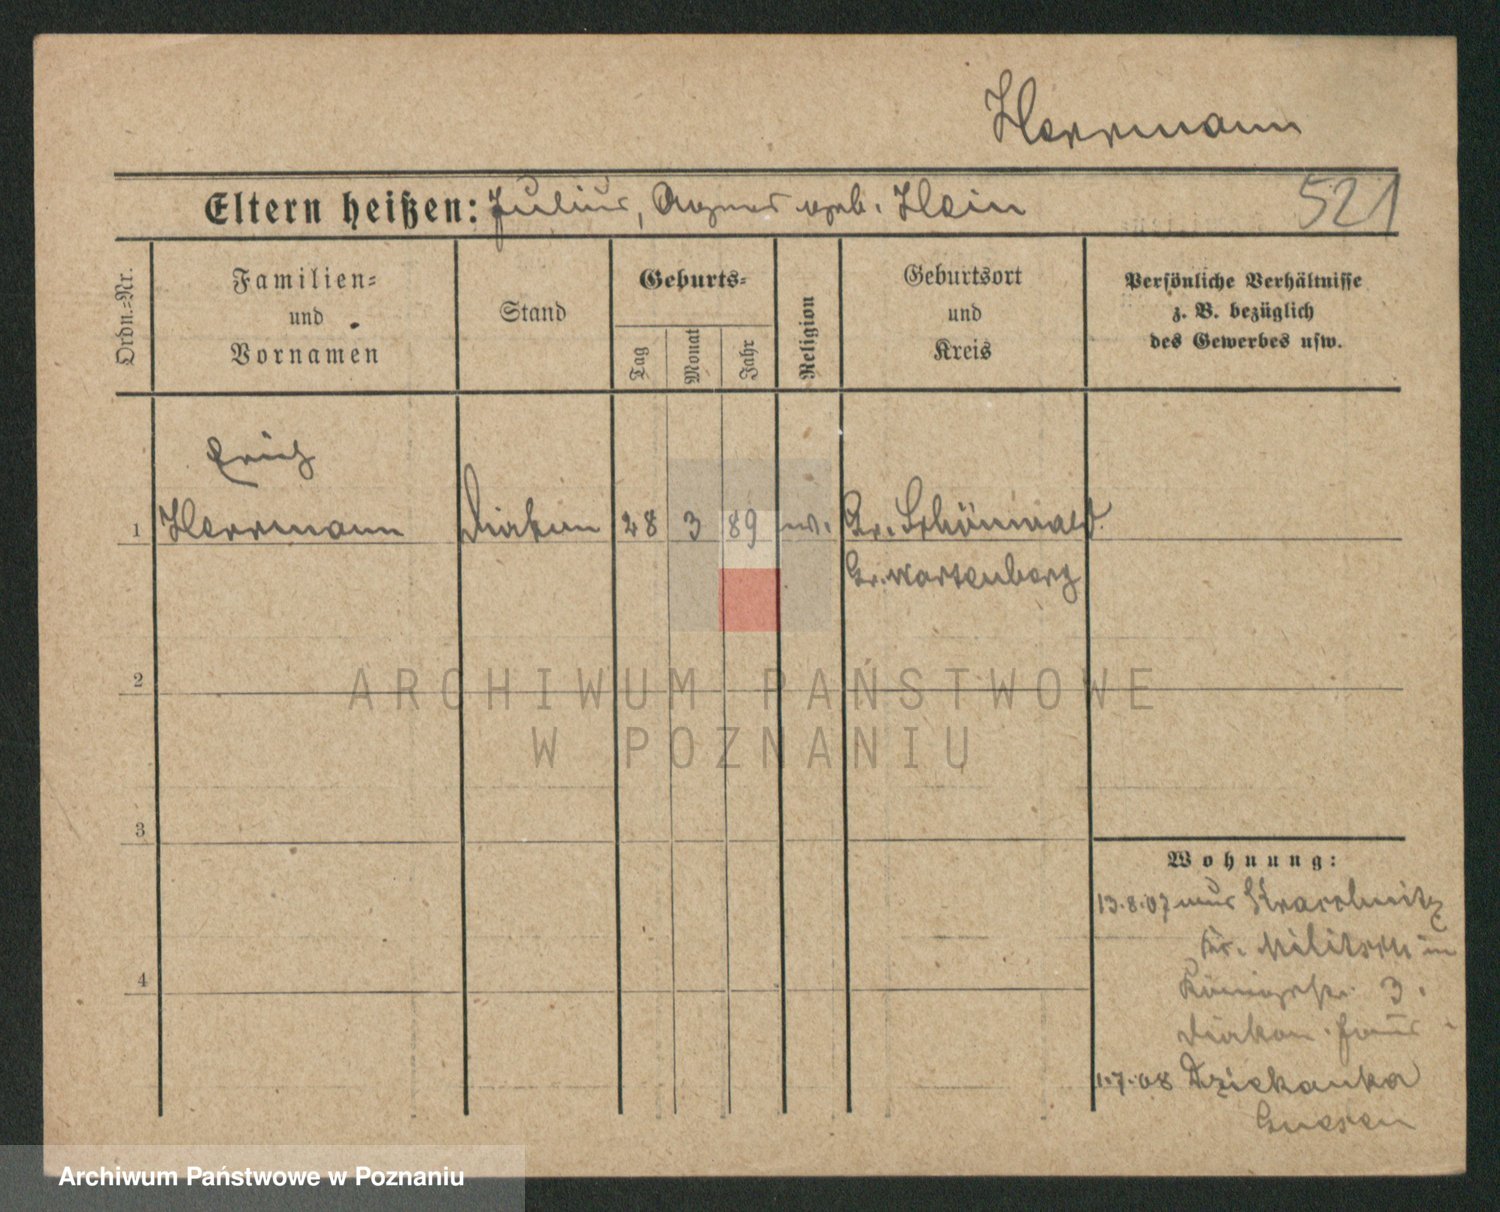 Herrmann
521
Eltern heißen: Julius, Agnes geb. Hein
Ordn.=Nr.
Familien=
und
Vornamen
Stand
Geburts=
Tag
Monat
Jahr
Religion
Geburtsort
und
Kreis
Persönliche Verhältnisse
z. B. bezüglich
des Gewerbes usw.
Erich
1 Herrmann Diakon 28 3 89 ev. Gr. Schönwald
Gr. Wartenberg
2
ARCHIWUM PAŃSTWOWE
W POZNANIU
3
Wohnung:
13.8.07 aus Kraschnitz
Kr. Militsch in
4
Königstr. 3.
Diakon.haus
1.7.08 Dziekanka
Gnesen
Archiwum Państwowe w Poznaniu